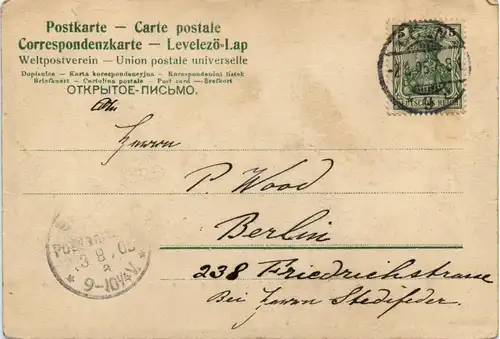 Postkarte — Carte postale
Correspondenzkarte — Levelező-Lap
Weltpostverein — Union postale universelle
Dopisnice — Karta korespondencyjna — Korespondenčni listek
Briefkaart — Cartolina postale — Post card — Brefkort
ОТКРЫТОЕ-ПИСЬМО.
Herrn
P. Wood
Berlin
238 Friedrichstrasse
Bei Herrn Stedifeder.
DEUTSCHES REICH